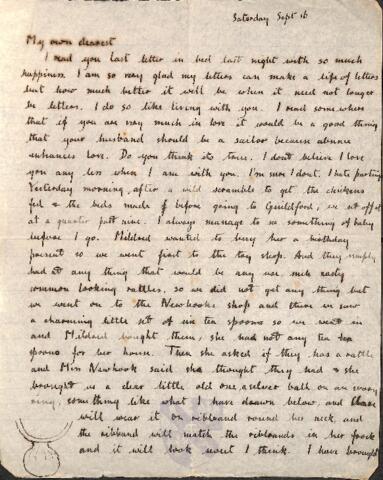 Saturday Sept 16
My own dearest
I read you last letter in bed last night with so much
happiness. I am so very glad my letters can make a life of letters
but how much better it will be when it need not longer
be letters. I do so like living with you. I read somewhere
that if you are very much in love it would be a good thing
that your husband should be a sailor because absence
enhances love. Do you think its true. I dont believe I love
you any less when I am with you. I'm sure I dont. I hate parting
Yesterday morning, after a wild scramble to get the chickens
fed & the beds made before going to Guildford, we set off at
at a quarter past nine. I always manage to see something of baby
before I go. Mildred wanted to buy her a birthday
present so we went first to the toy shop. And they simply
had at any thing that would be any use nasty
common looking rattles, so we did not get any thing but
we went on to the Newhooks shop and there in saw
a charming little set of six tea spoons so we went in
and Mildred bought them, she had not any tea tea
spoons for her house. Then she asked if they has a rattle
and Miss Newhook said she thought they had & she
brought us a clear little old one, a silver ball on an ivory
ring, something like what I have drawn below, and
will wear it on ribband round her neck, and
the ribband will match the ribbands in her frock
and it will look sweet I think. I have brought